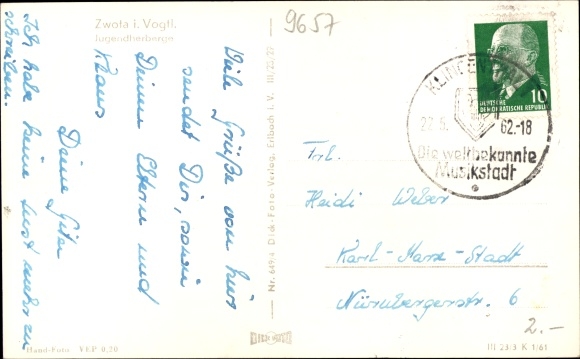 Zwota i. Vogtl.
Jugendherberge
9657
Viele Grüße von hier
sendet Dir, sowie
Deinen Eltern und
Klaus
Deine Gitta
Ich habe keine Lust mehr zu
schreiben.
Hand-Foto VEP 0,20
Nr. 6494 Dick-Foto-Verlag, Erlbach i. V. III/25/29
DEUTSCHE
DEMOKRATISCHE REPUBLIK
10
KLINGENTHAL
62.-18
Die weltbekannte
Musikstadt
Frl.
Heidi Weber
Karl-Marx-Stadt
Nürnbergerstr. 6
2.-
III 23/3 K 1/61